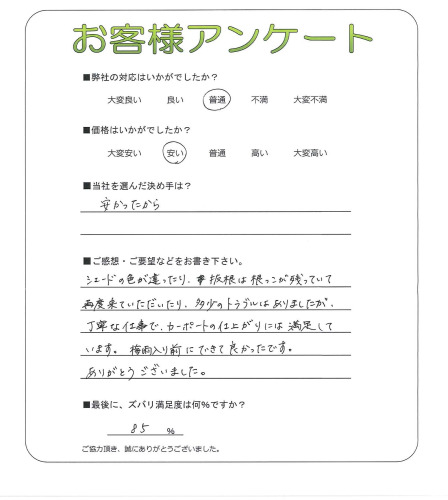 お客様アンケート
■弊社の対応はいかがでしたか？
大変良い 良い 普通 不満 大変不満
■価格はいかがでしたか？
大変安い 安い 普通 高い 大変高い
■当社を選んだ決め手は？
安かったから
■ご感想・ご要望などをお書き下さい。
シェードの色が違ったり、根は根っこが残っていて
再度来ていただいたり、多少のトラブルはありましたが、
丁寧な仕事で、カーポートの仕上がりには満足して
います。梅雨入り前にできて良かったです。
ありがとうございました。
■最後に、ズバリ満足度は何％ですか？
85 ％
ご協力頂き、誠にありがとうございました。